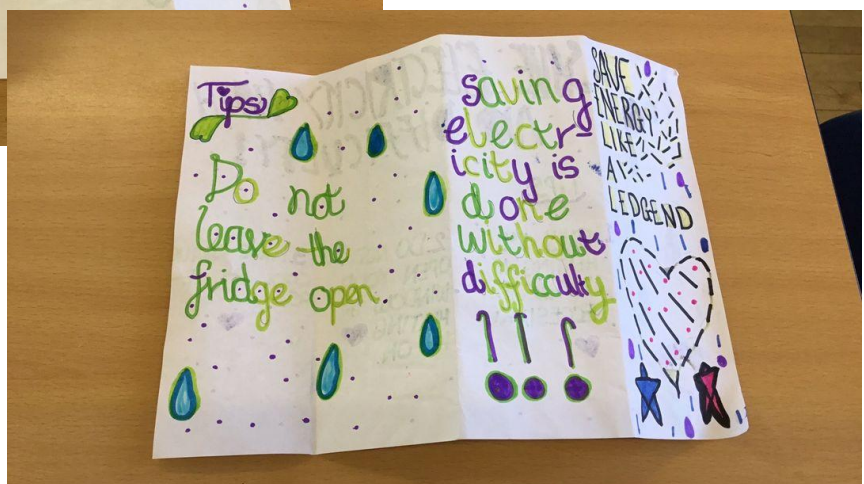 Tips
Do not
leave the
fridge open.
saving
electr-
icity is
done
without
difficulty
!!!
SAVE
ENERGY
LIKE
A
LEDGEND